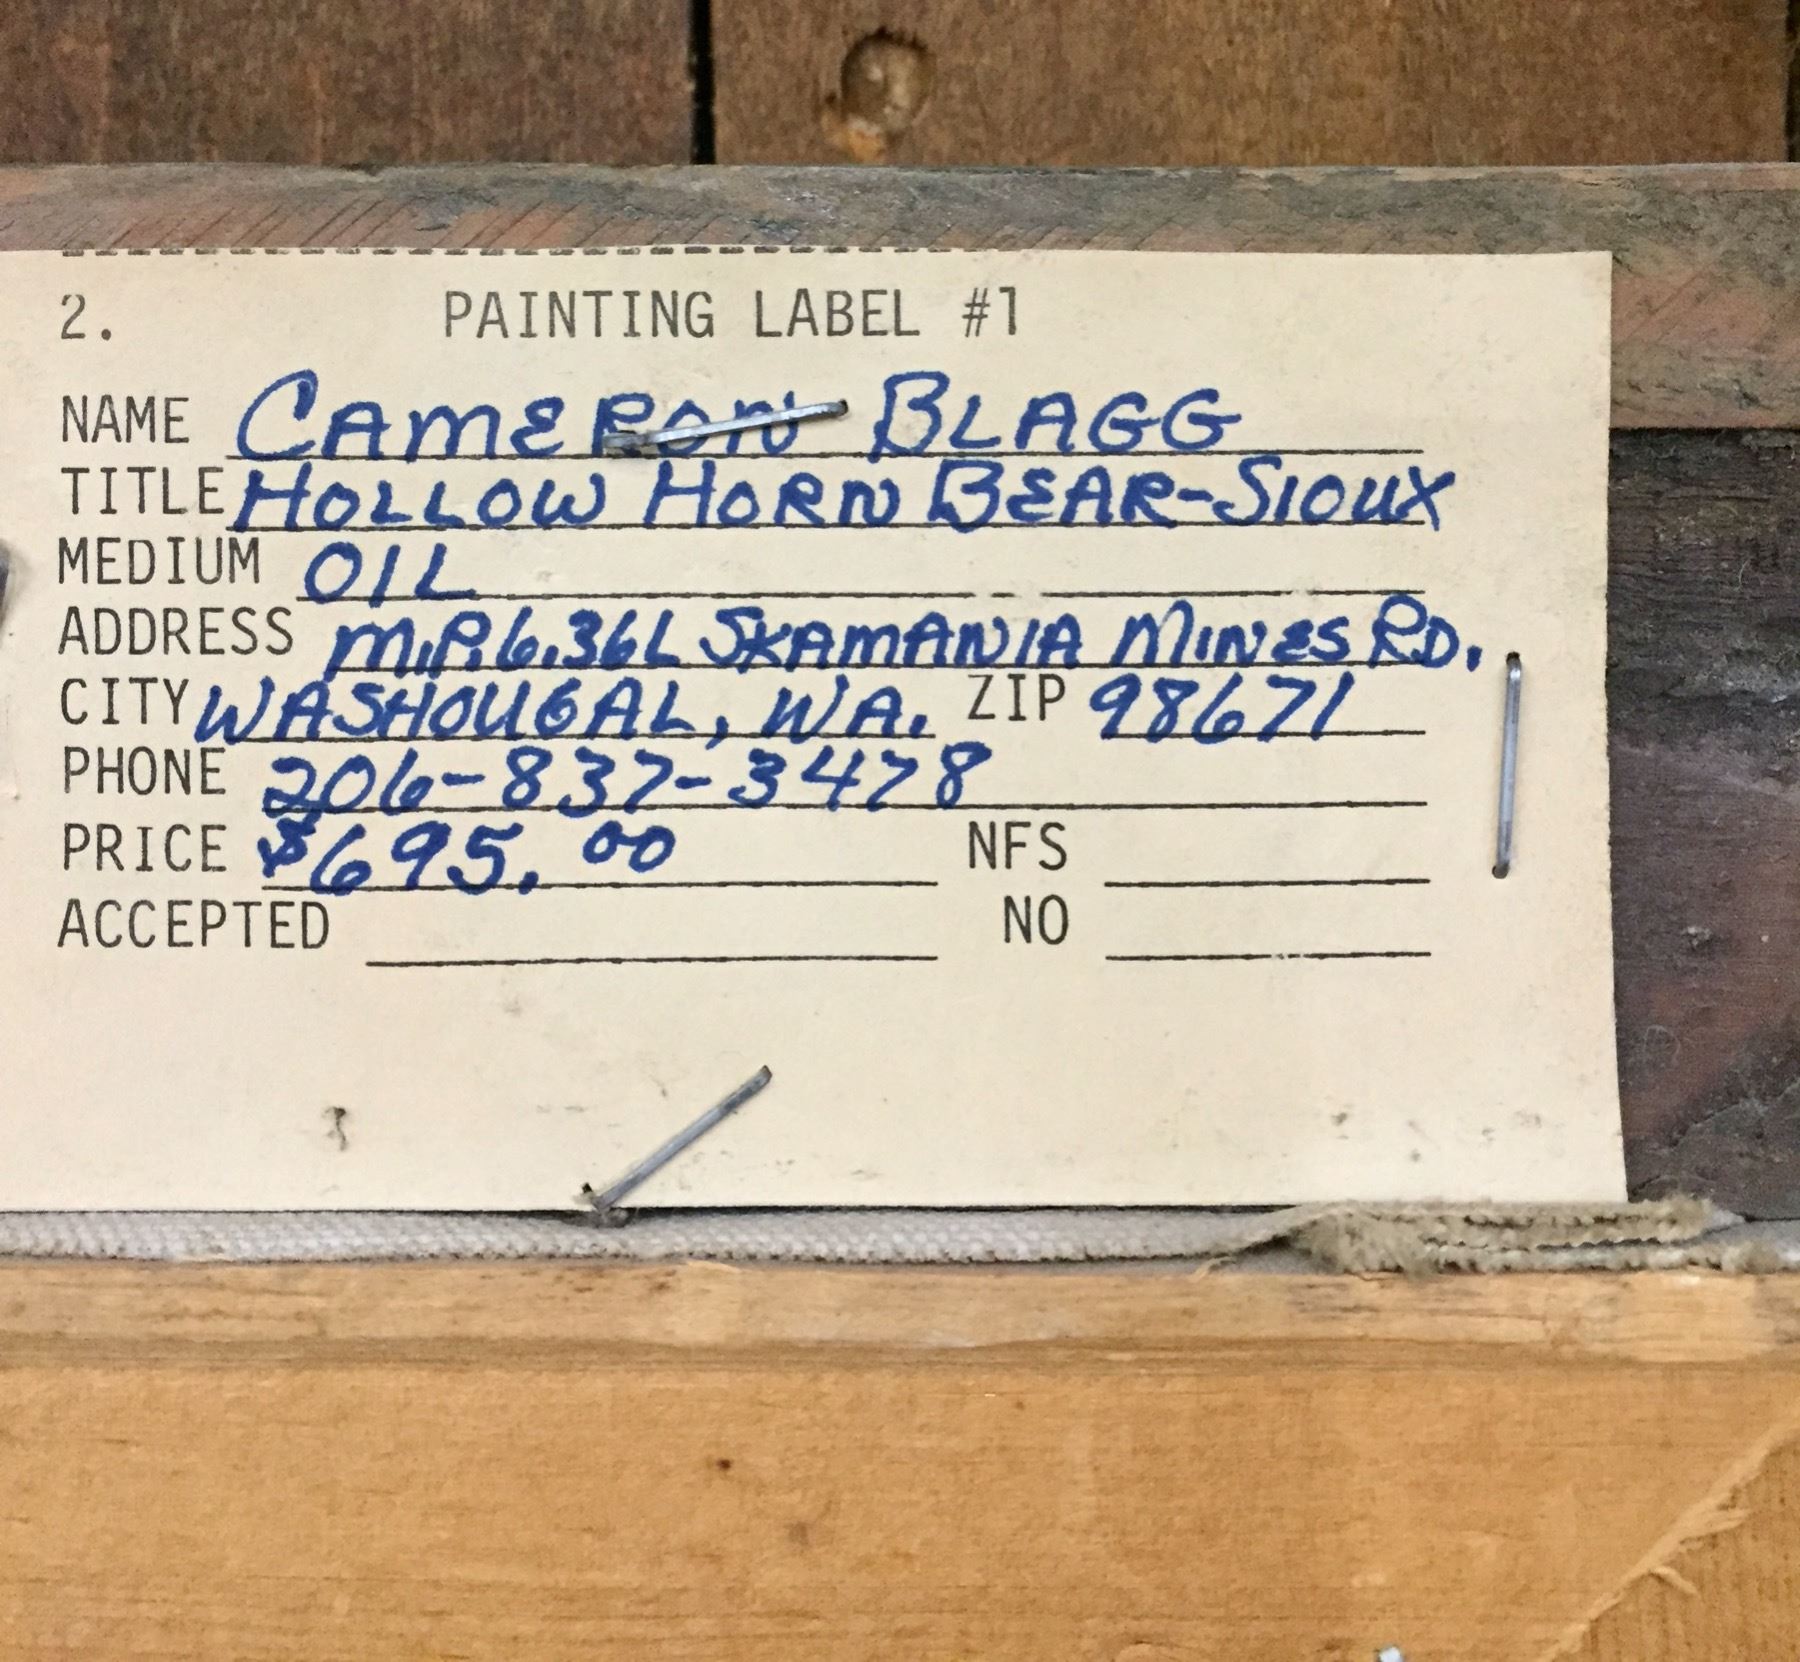 2. PAINTING LABEL #1
NAME CAMERON BLAGG
TITLE HOLLOW HORN BEAR-SIOUX
MEDIUM OIL
ADDRESS M.P. 6.36L SKAMANIA MINES RD.
CITY WASHOUGAL, WA. ZIP 98671
PHONE 206-837-3478
PRICE $695.00 NFS
ACCEPTED NO